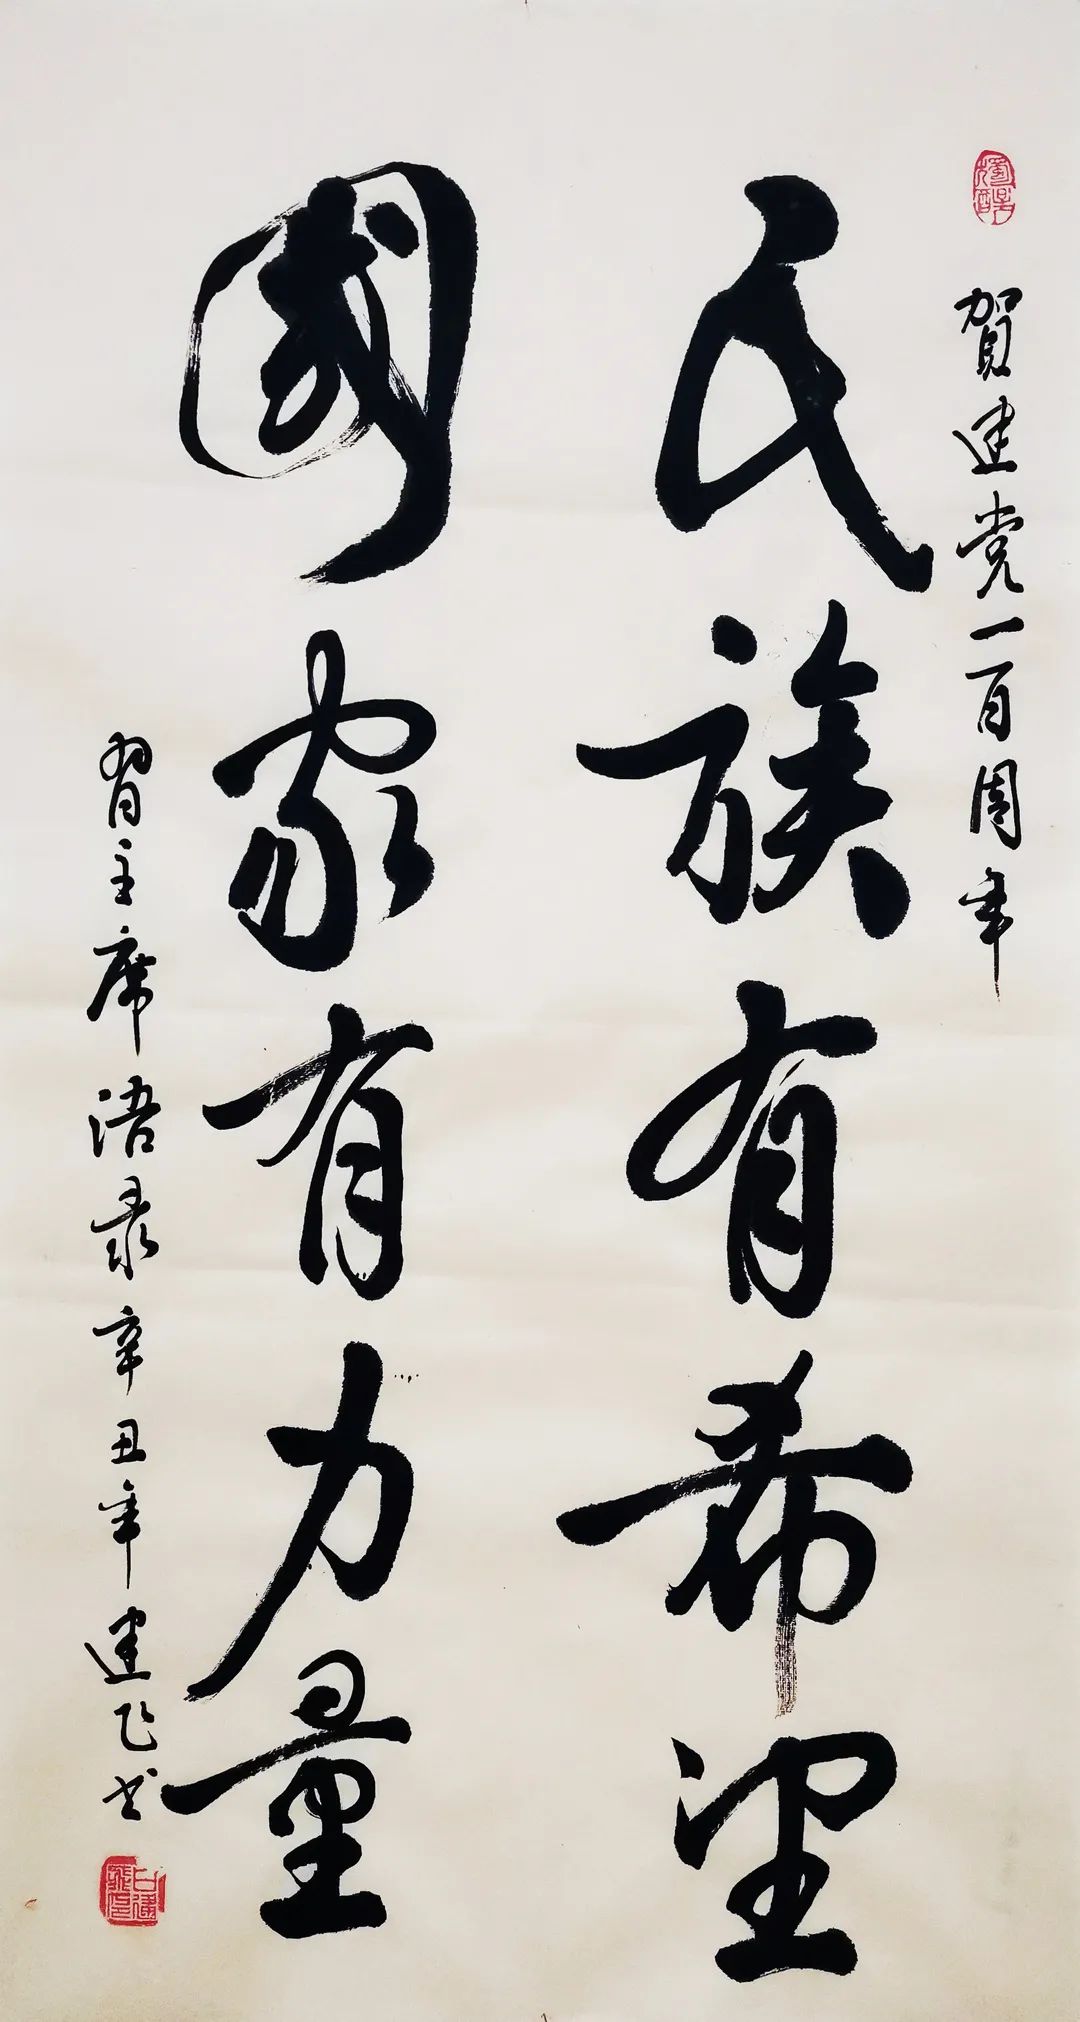 賀建党一百周年
民族有希望
國家有力量
習主席语录辛丑年建飞书